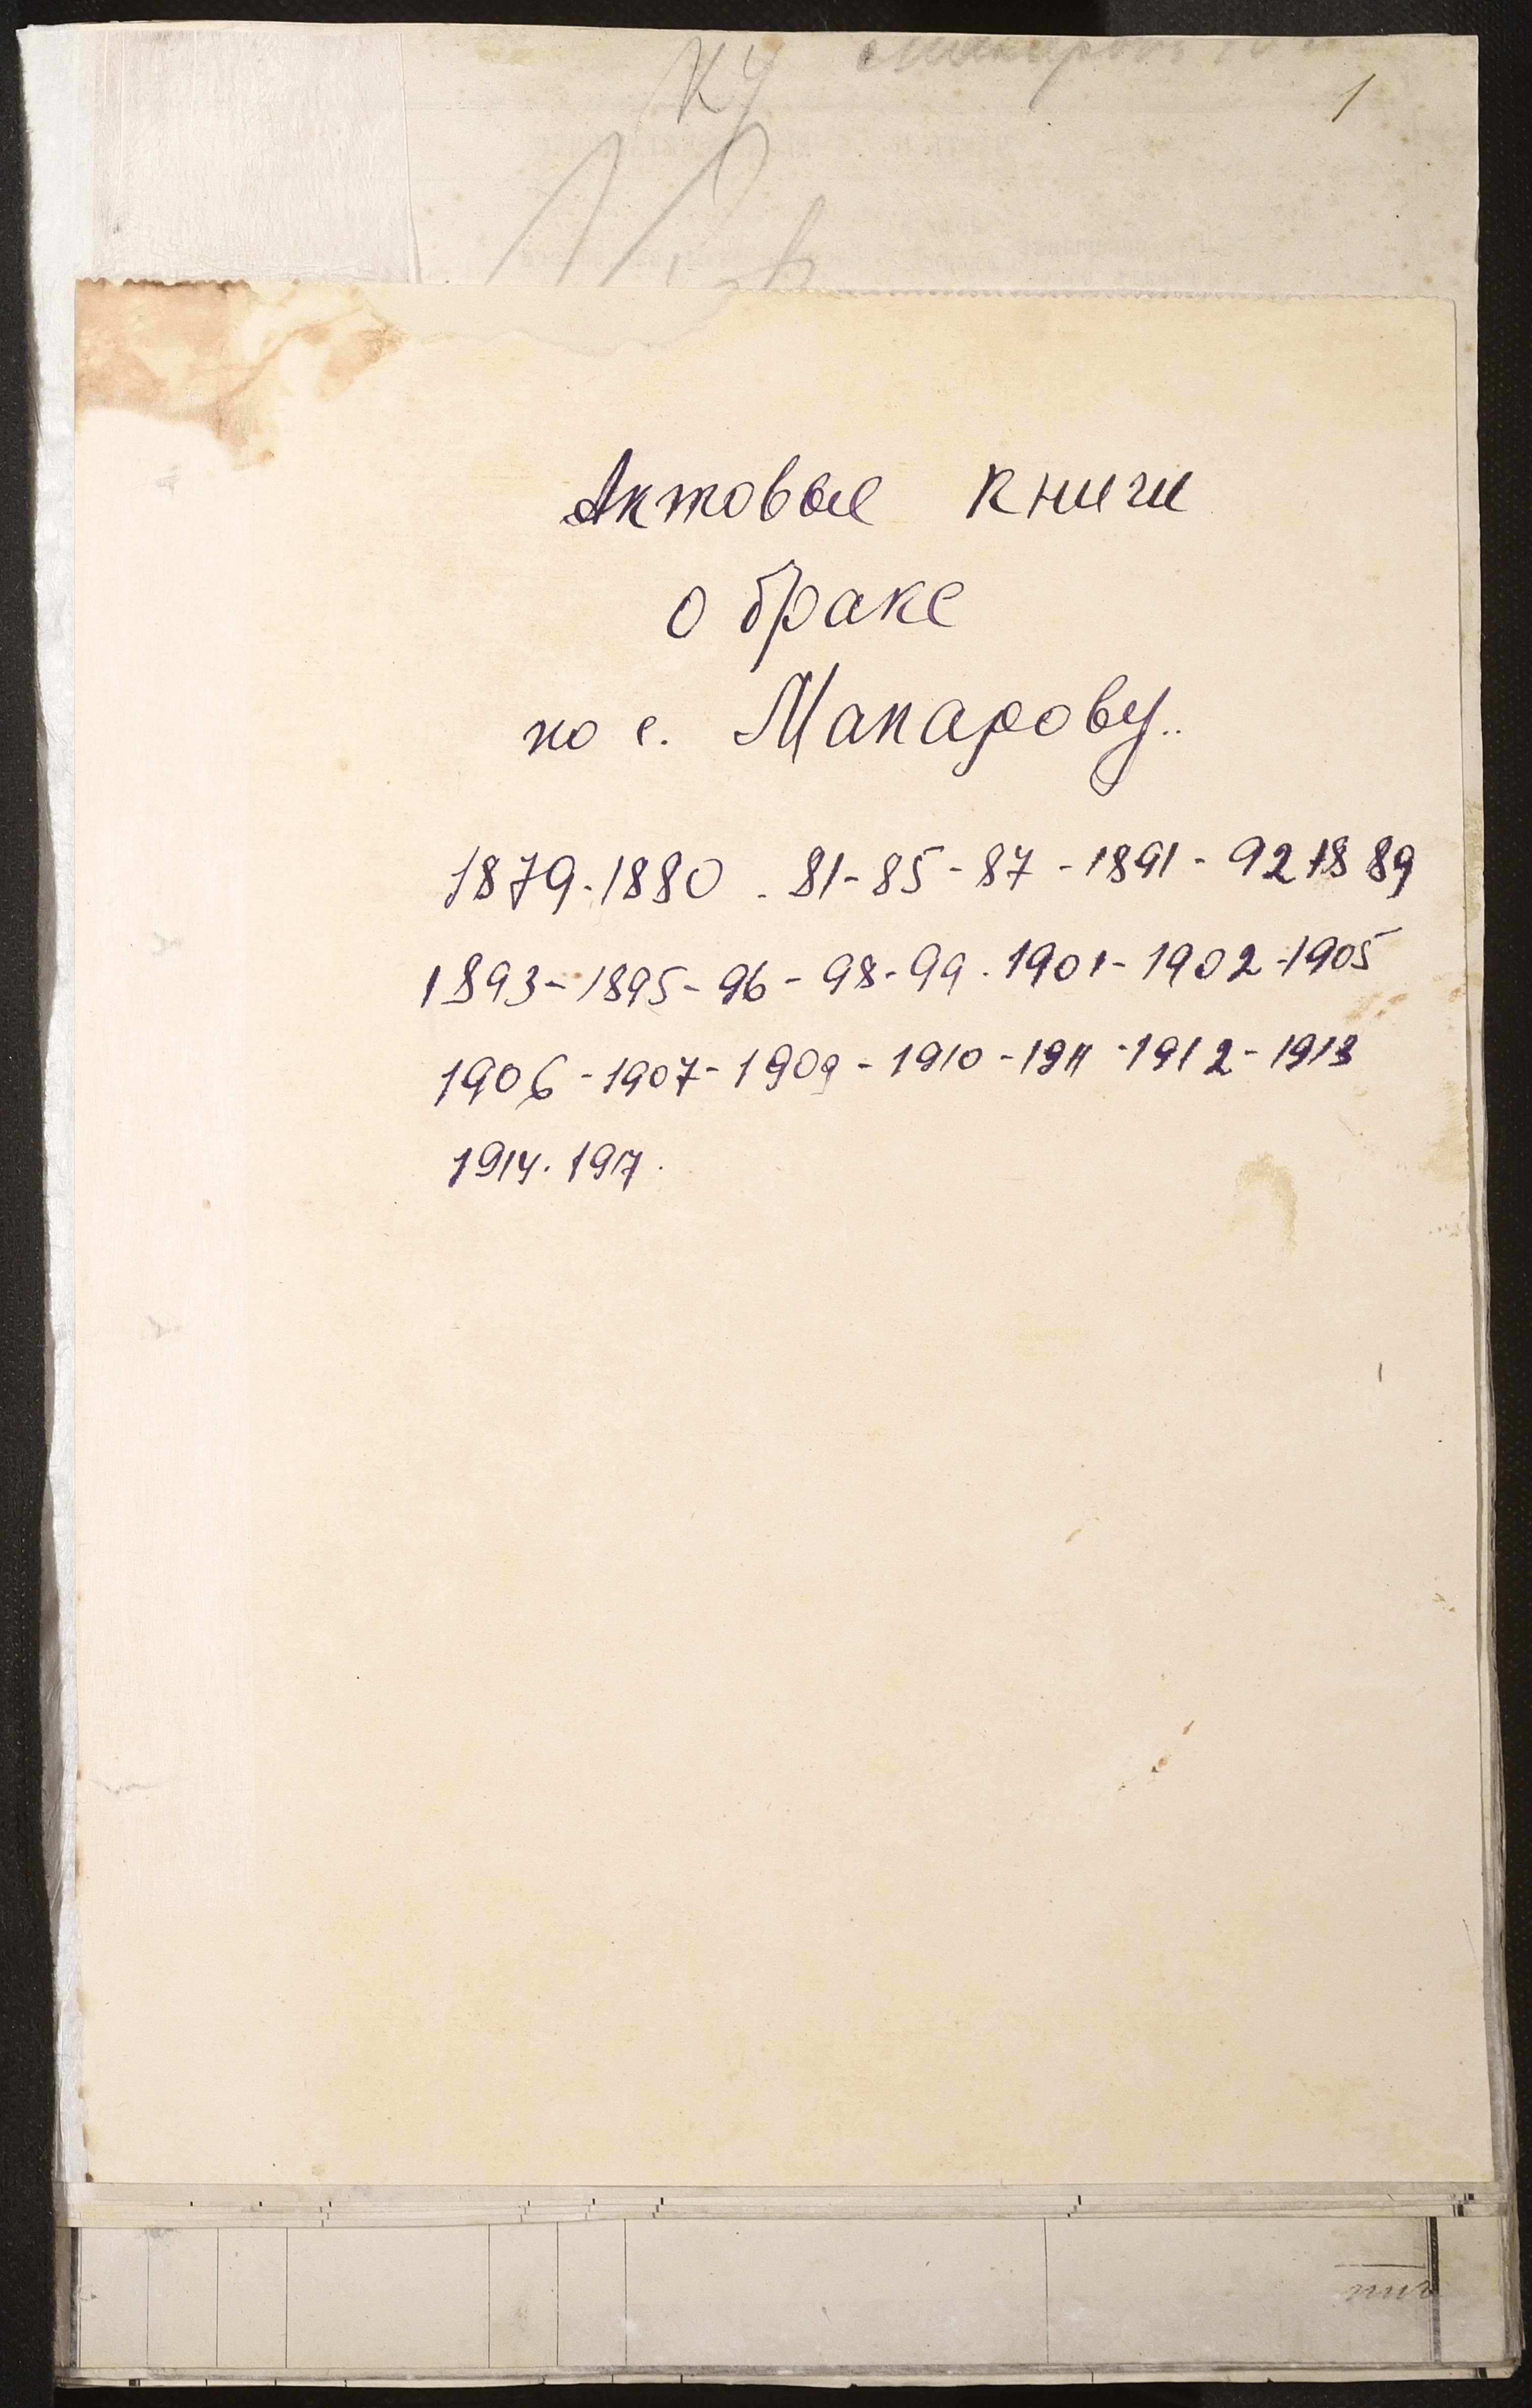 1
Актовые книги
о браке
по с. Макарову..
1879-1880 - 81-85-87-1891-92 1889
1893-1895-96-98-99. 1901-1902-1905
1906-1907-1909-1910-1911-1912-1913
1914. 1917.